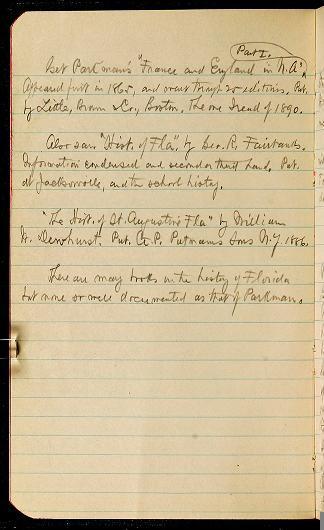 Part I.
Get Parkman's "France and England in N.A"
Appeared first in 1865, and went through 20 editions, Pub.
by Little, Brown & Co., Boston. The one I read of 1890.
Also saw "Hist. of Fla", by Geo. R. Fairbanks.
Information condensed and second or third hand, Pub.
at Jacksonville, and the school history.
"The Hist. of St. Augustine Fla" by William
W. Dewhurst. Pub. G. P. Putnams Sons N.Y. 1886.
There are many books on the history of Florida
but none so well documented as that of Parkman.